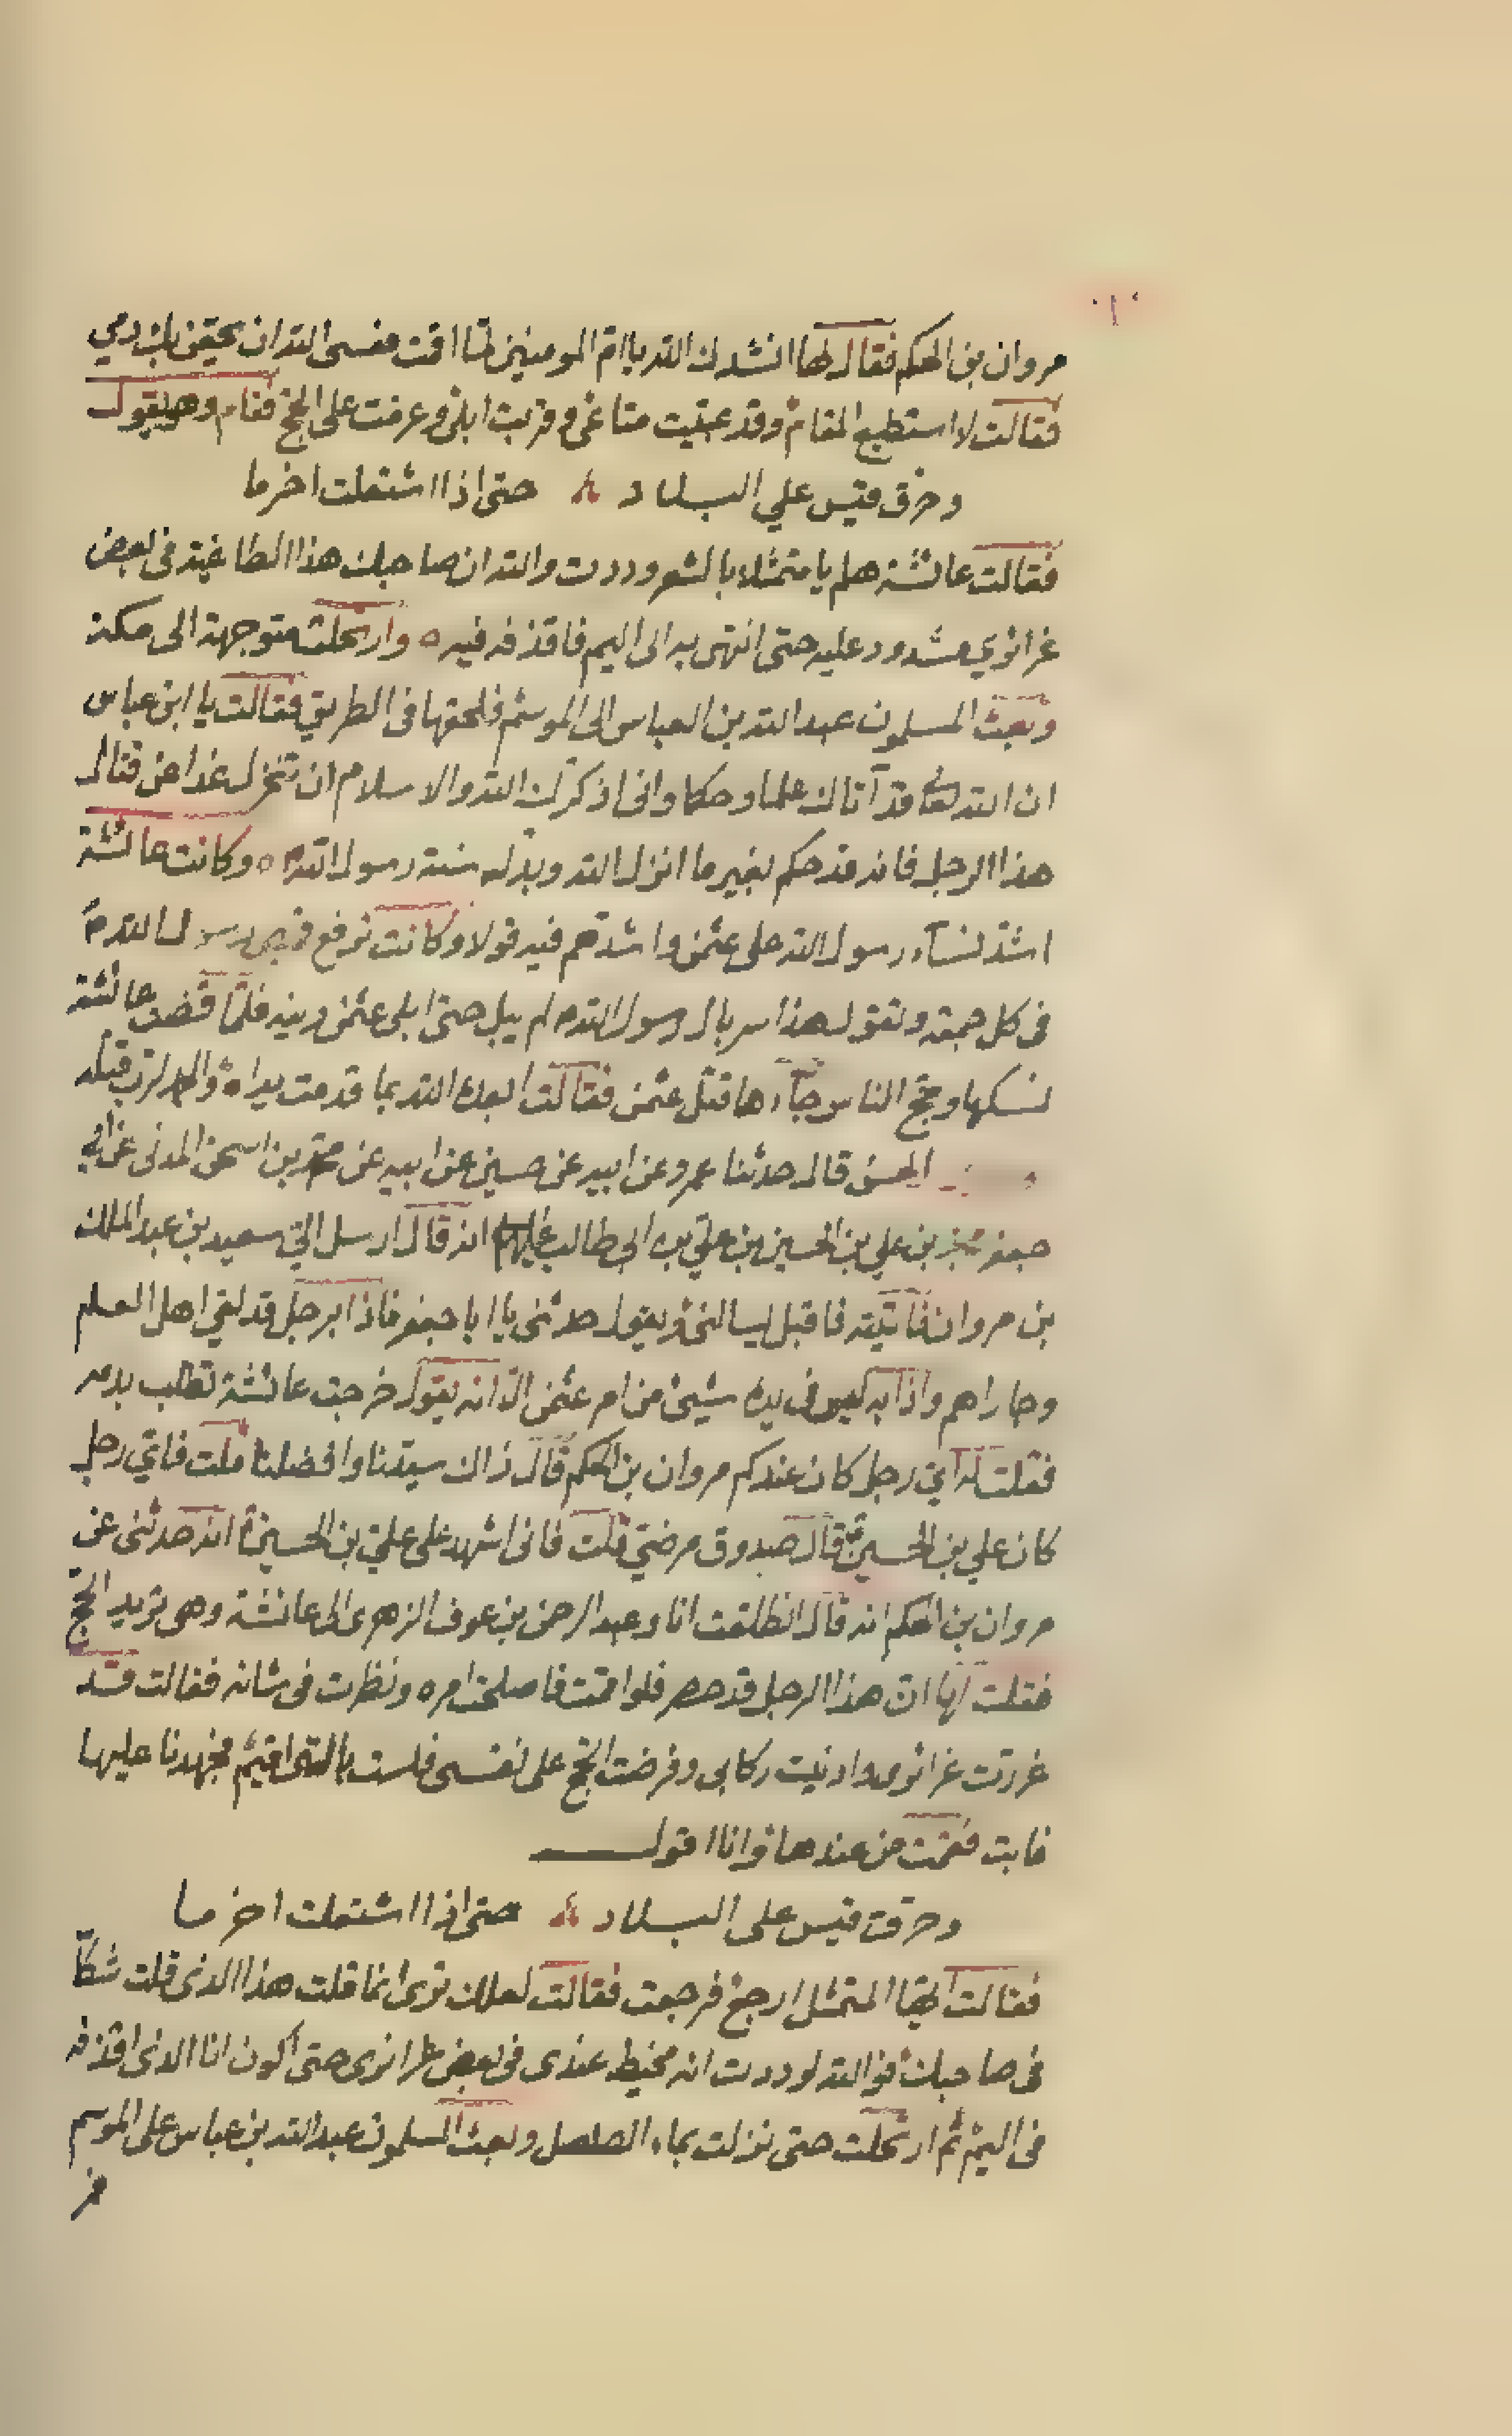 مروان بن الحكم فقال لها انشدك الله يا ام المومنين لما اقمت فعسى الله ان يحقن بك دمي
فقالت لا استطيع المقام وقد عبيت متاعي وقربت ابلي وعزمت على الحج فقام وهو يقول
وحرق قيس علي البلاد حتى اذا اشتعلت اخرما
فقالت عائشة هلم يا متمثلا بالشعر وددت والله ان صاحبك هذا الطاغية في بعض
غرائري مشدود عليه حتى انتهى به الى اليم فاقذفه فيه وارتحلت متوجهة الى مكة
وبعث المسلمون عبد الله بن العباس الى الموسم فلحقها في الطريق فقالت يا ابن عباس
ان الله تعالى قد آتاك علما وحكما واني اذكرك الله والاسلام ان تخزل غدا عن قتال
هذا الرجل فانه قد حكم بغير ما انزل الله وبدل سنة رسول الله ص وكانت عائشة
اشد نساء رسول الله على عثمن واشدهم فيه قولا وكانت ترفع قميص رسول الله ص
في كل جمعة وتقول هذا سربال رسول الله ص لم يبل حتى ابلى عثمن دينه فلما قضت عائشة
نسكها وحج الناس جاءها قتل عثمن فقالت ابعده الله بما قدمت يداه والحمد لله قتله
الحسن قال حدثنا عمرو عن ابيه عن حسين عن ابيه عن محمد بن اسحق المدني عن ابي
جعفر محمد بن علي بن الحسين بن علي بن ابي طالب عليهم انه قال ارسل الي سعيد بن عبد الملك
بن مروان فاتيته فاقبل يسالني ويقول حدثني يا ابا جعفر فاذا برجل قد لقي اهل العلم
وجاراهم واذا به ليس في يده شيئ من امر عثمن الا انه يقول خرجت عائشة تطلب بدمه
فقلت له اي رجل كان عندكم مروان بن الحكم قال ذاك سيدنا وافضلنا قلت فاي رجل
كان علي بن الحسين قال صدوق مرضي قلت فاني اشهد على علي بن الحسين انه حدثني عن
مروان بن الحكم انه قال انطلقت انا وعبد الرحمن بن عوف الزهري الى عائشة وهي تريد الحج
فقلت لها ان هذا الرجل قد حصر فلو اقمت فاصلحت امره ونظرت في شانه فقالت قد
غررت غرائري وادنيت ركابي وفرضت الحج على نفسي فلست بالتي اقيم فجهدنا عليها
فابت فقمت من عندها وانا اقول
وحرقت قيس على البلاد حتى اذا اشتعلت اخرما
فقالت ايها المتمثل ارجع فرجعت فقالت لعلك ترى انما قلت هذا الذي قلت شكا
في صاحبك فوالله لوددت انه مخيط عندي في بعض غرائري حتى اكون انا الذي اقذفه
في اليم ثم ارتحلت حتى نزلت بماء الصلصل وبعث المسلمون عبد الله بن عباس على الموسم